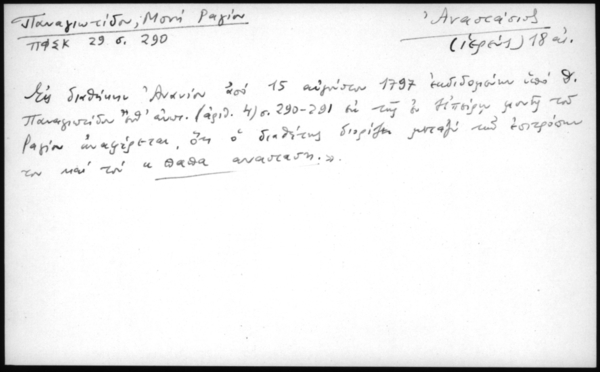 Παναγιωτίδου, Μονή Ραγίου
ΠΦΣΚ 29 σ. 290
Ἀναστάσιος
(ἱερεύς) 18 αἰ.
Εἰς διαθήκην Ἀνανίου ἀπό 15 αὐγούστου 1797 ἐκδιδομένην ὑπό Θ.
Παναγιωτίδου ἔνθ' ἀνωτ. (ἀριθ. 4) σ. 290-291 ἐκ τῆς ἐν Ἠπείρῳ μονῆς τοῦ
Ραγίου ἀναφέρεται, ὅτι ὁ διαθέτης διορίζει μεταξύ τῶν ἐπιτρόπων
του καί τόν κ παπα ανασταση.».